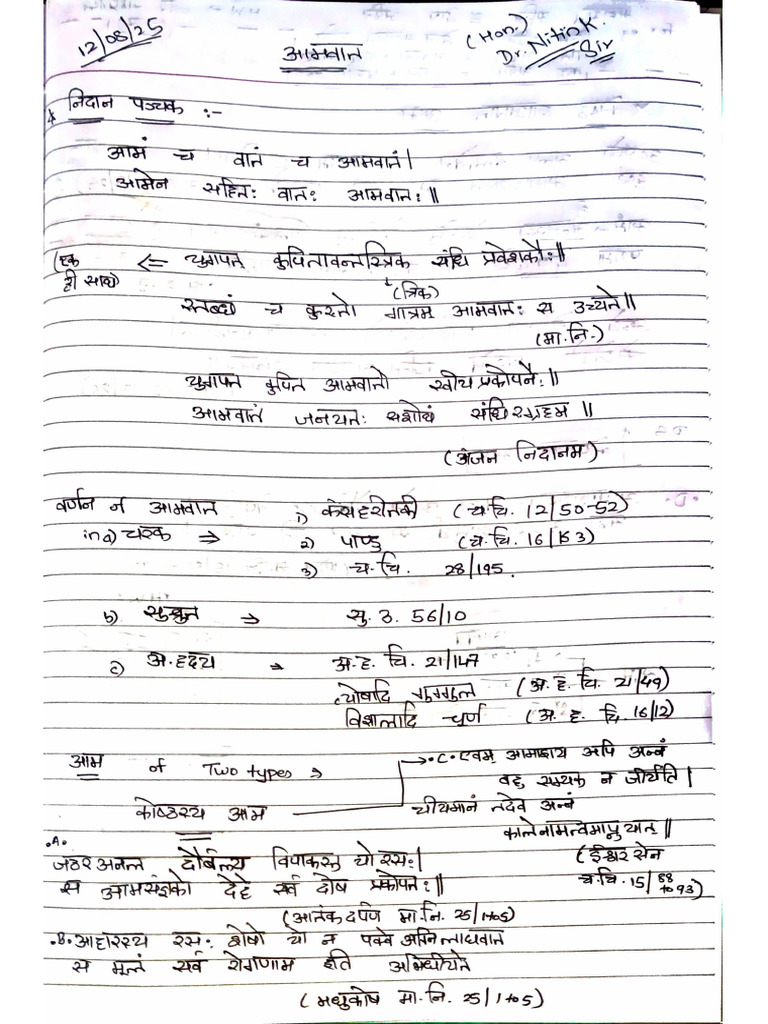 12/08/25
आमवात
(Hon.)
Dr. Nitin K Sir
* निदान पञ्चक :-
आमं च वातं च आमवातं।
आमेन सहितः वातः आमवातः॥
(एक ही साथ) <= युगपत् कुपितावन्तस्त्रिक संधि प्रवेशकौः॥
(त्रिक)
स्तब्धं च कुरुतो गात्रम् आमवातः स उच्यते॥
(मा.नि.)
युगपत कुपित आमवातो स्वीय प्रकोपनैः॥
आमवातं जनयतः सशोथं संधि रग्रहम ॥
(अंजन निदानम)
वर्णन of आमवात 1) कंसहरीतकी (च.चि. 12/50-52)
in a) चरक => 2) पाण्डु (च.चि. 16/
3) च.चि. 28/195.
b) सुश्रुत => सु. उ. 56/10
c) अ.हृदय => अ.हृ. चि. 21/47
व्योषादि गुग्गुल (अ.हृ. चि. 21/49)
विशालादि चूर्ण (अ.हृ. चि. 16/12)
आम of Two types =>
कोष्ठस्य आम
.C. एवम् आमाशय अपि अन्नं
बहु सम्यक न जीर्यति।
चीयमानं तदेव अन्नं
कालेनामत्वमाप्नुयात्॥
(ईश्वर सेन
च.चि. 15/88 to 93)
.A.
जठर अनल दौर्बल्य विपाकस्तु यो रसः।
स आमसंज्ञको देहे सर्व दोष प्रकोपतः॥
(आतंक दर्पण मा.नि. 25/1to5)
.B. आहारस्य रसः शेषो यो न पक्वे अग्निलाघवात
स मूलं सर्व रोगाणाम इति अभिधीयते
(मधुकोष मा.नि. 25/1to5)